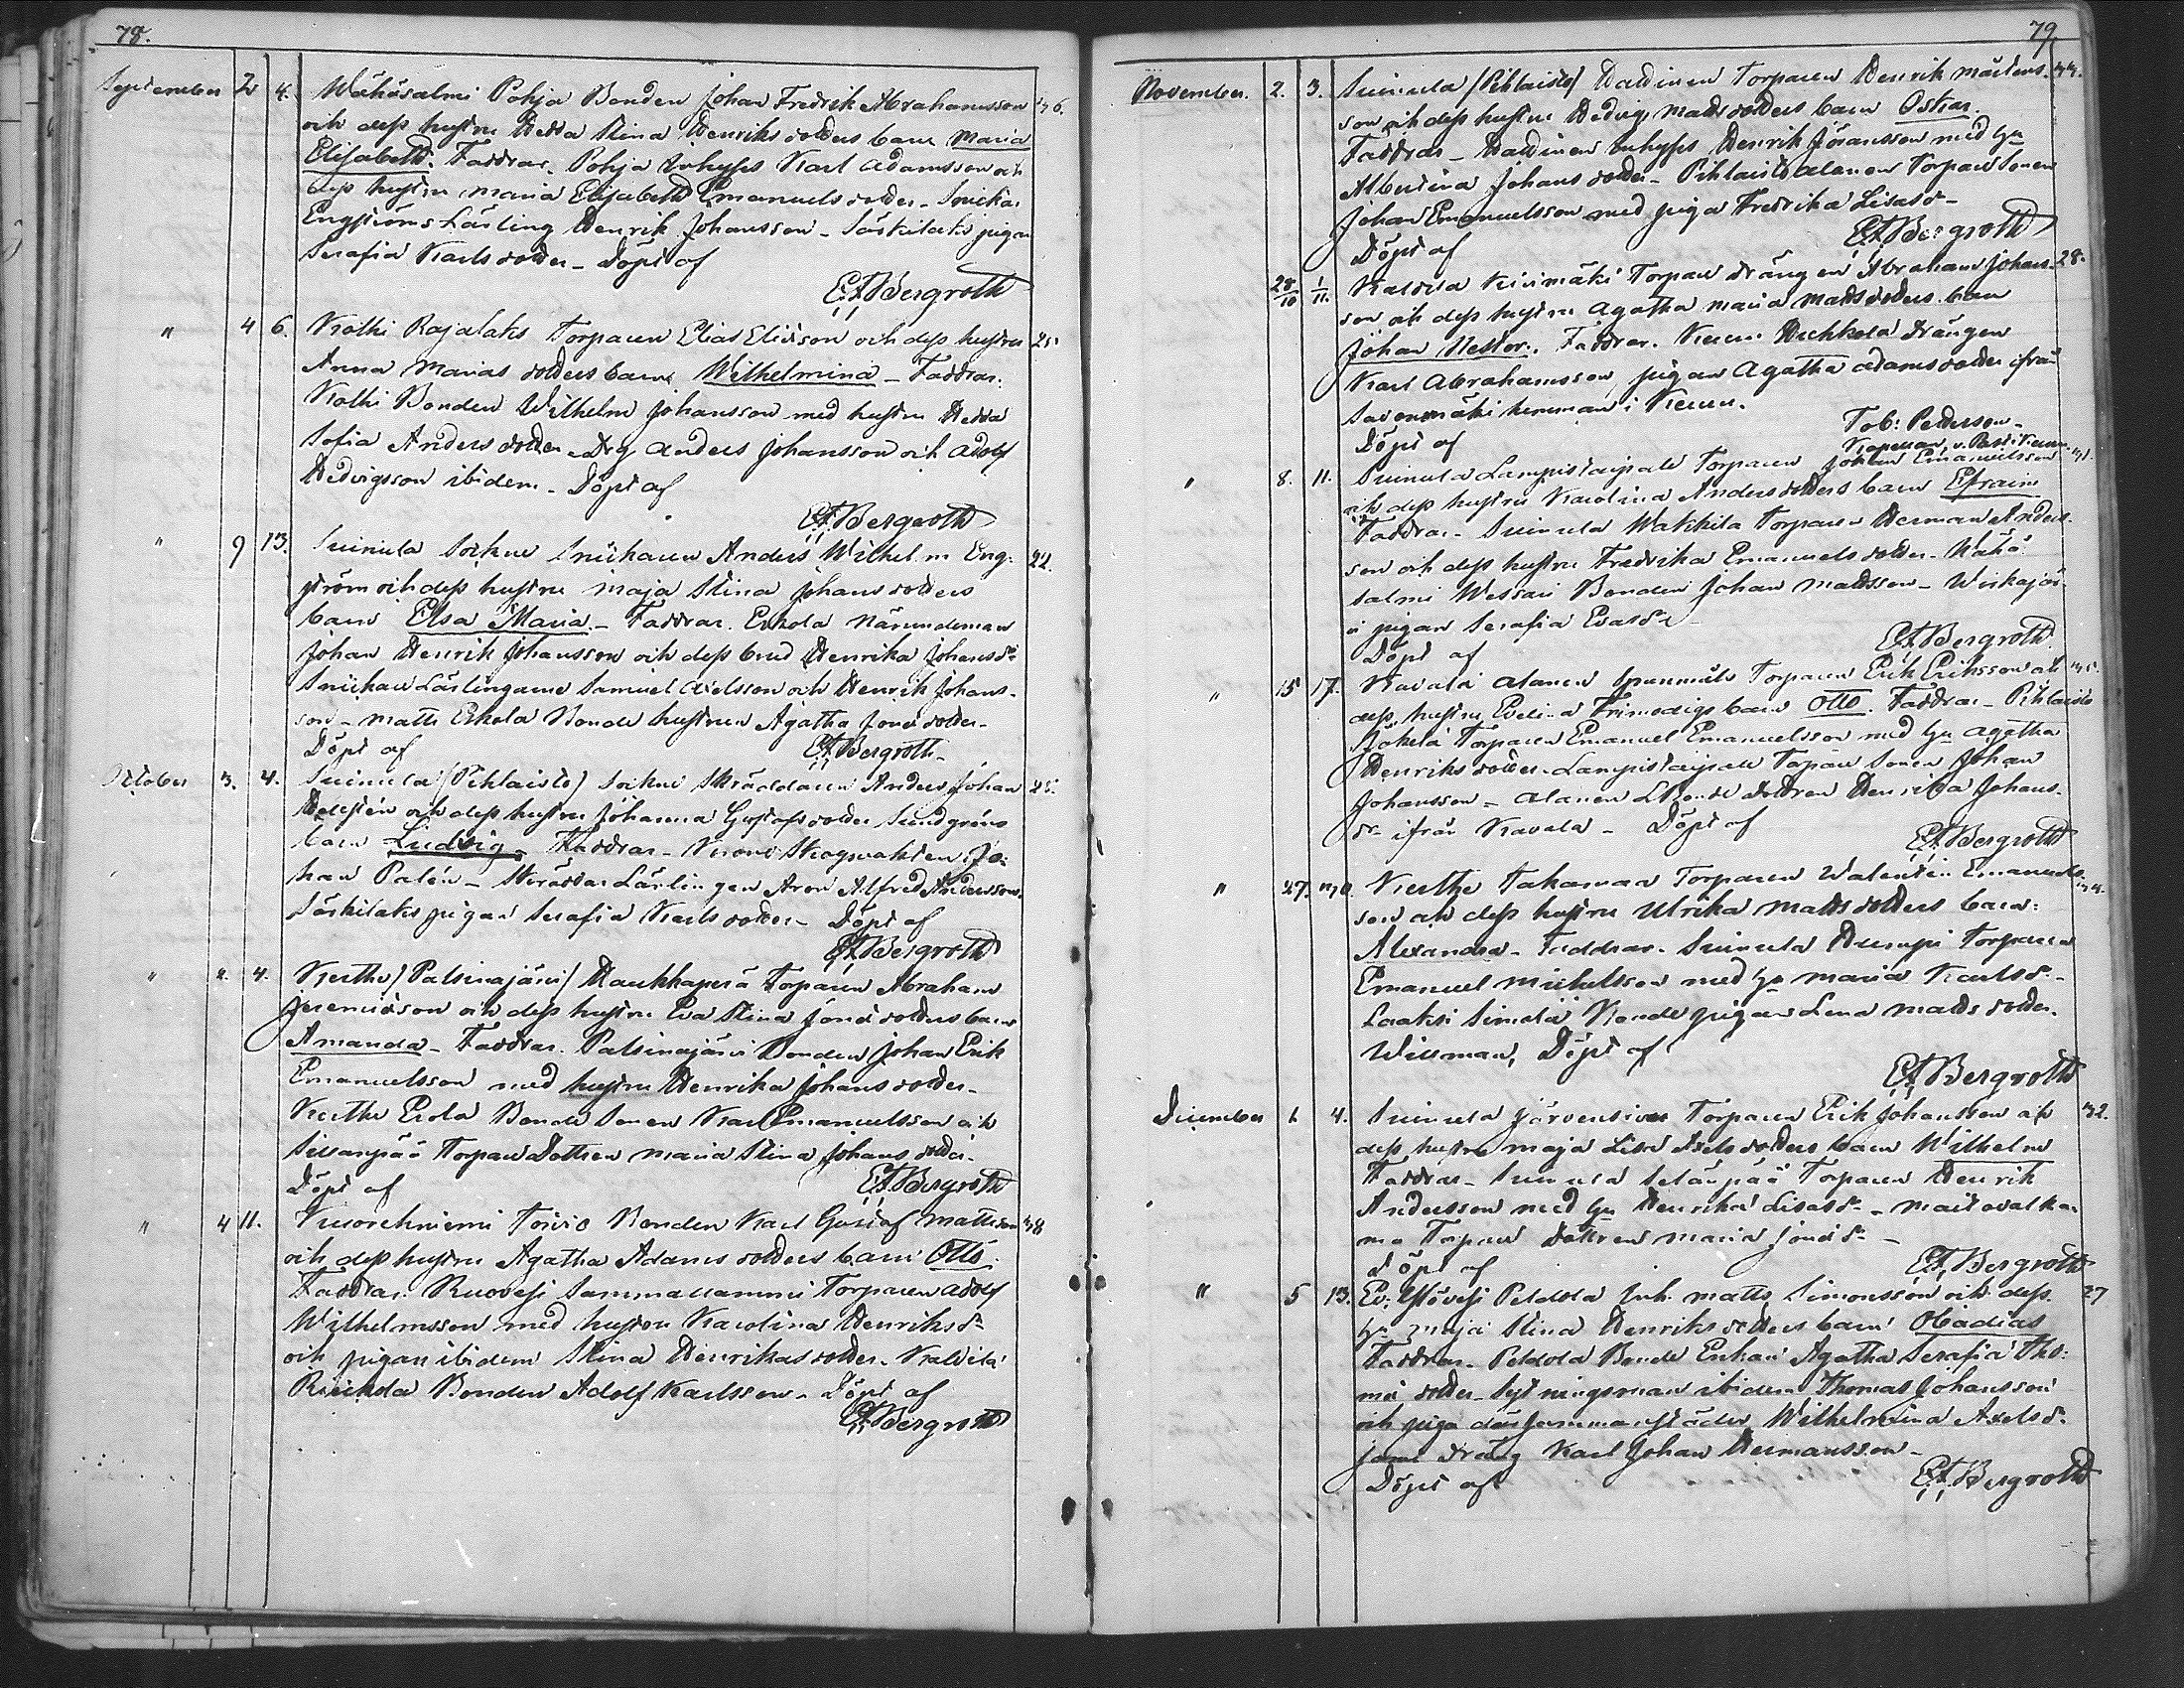 78.
September 2 4. Wähäsalmi Pohja Bonden Johan Fredrik Abrahamsson 36.
och dess hustru Hedda Stina Henriks dotters barn Maria
Elisabeth. Faddrar. Pohja Inhyses Karl Adamsson och
dess hustru Maria Elisabeth Emanuels dotter - Snickar
Engströms Lärling Henrik Johansson - Särkilaks pigan
Serafia Karls dotter - Döpt af
E.A. Bergroth
" 4 6. Kothi Rajalaks Torparen Elias Eliæson och dess hustru 25.
Anna Marias dotters barn Wilhelmina - Faddrar.
Kothi Bonden Wilhelm Johansson med hustru Hedda
Sofia Anders dotter - Drg Anders Johansson och Adolf
Hedvigsson ibidem - Döpt af
E.A. Bergroth
" 9 13. Suinula Sockne Snickaren Anders Wilhelm Eng- 22.
ström och dess hustru Maja Stina Johans dotters
barn Elsa Maria - Faddrar. Erkola Nämndeman
Johan Henrik Johansson och dess brud Henrika Johansdr
Snickare Lärlingarne Samuel Axelsson och Henrik Johans-
son - Matti Eskola Bonde hustrun Agatha Jonæ dotter -
Döpt af E.A. Bergroth.
October 3. 4. Suinula (Pihlaisto) Sockne Skräddaren Anders Johan 25.
och dess hustru Johanna Gustafs dotter Sundgréns
barn Ludvig - Faddrar - Krono Skogvakten Jo-
han Palén - Skräddar Lärlingen Aron Alfred Andersson.
Särkilaks pigan Serafia Karls dotter - Döpt af
E.A. Bergroth
" 2. 4. Keuthe (Palsinajärvi) Haukkaperä Torparen Abraham
Jeremiæson och dess hustru Eva Stina Jonæ dotters barn
Amanda - Faddrar. Palsinajärvi Bonden Johan Erik
Emanuelsson med hustru Henrika Johans dotter -
Keuthe Erola Bonde Sonen Karl Emanuelsson och
Torpare Dottren Maria Stina Johans dotter -
Döpt af E.A. Bergroth
" 4 11. Kuorehniemi Toivio Bonden Karl Gustaf Mattsson 38
och dess hustru Agatha Adams dotters barn Otto.
Faddrar. Ruovesi Sammallammi Torparen Adolf
Wilhelmsson med hustru Karolina Henriksdr
och pigan ibidem Stina Henrikas dotter. Kaldila
Bonden Adolf Karlsson - Döpt af
E.A. Bergroth
79
November. 2. 3. Suinula (Pihlaisto) Haldinen Torparen Henrik Mårtens- 44.
son och dess hustru Hedvig Matts dotters barn Oskar.
Faddrar - Haldinen Inhyses Henrik Göransson med hu
Albertina Johans dotter - Pihlaisto Alanen Torpare Sonen
Johan Emanuelsson med piga Fredrika Lisasdr -
Döpt af E.A. Bergroth
28/10 1/11. Kaldila Kivimäki Torpare drängen Abraham Johans- 28.
son och dess hustru Agatha Maria Mattsdotters barn
Johan Nestor. Faddrar. Keuru drängen
Karl Abrahamsson, pigan Agatha Adams dotter ifrån
Savenmäki hemman i Keuru.
Döpt af Tob: Pettersson
Kapellan, v. Past. i Keuru.
" 8. 11. Suinula Lampistaipale Torparen Johan Emanuelsson 31.
och dess hustru Karolina Anders dotters barn Efraim
Faddrar - Suinula Wakkila Torparen Herman Anders-
son och dess hustru Fredrika Emanuels dotter - Wähä-
salmi Wessari Bonden Johan Mattsson - Wirkajär-
vi pigan Serafia Evasdr -
Döpt af E.A. Bergroth
" 15 17. Kavala Alanen Torparen Erik Eriksson och 35.
dess hustru Evelina Frimodigs barn Otto. Faddrar - Pihlaisto
Jokela Torparen Emanuel Emanuelsson med hu Agatha
Henriks dotter - Lampistaipale Torpare Sonen Johan
Johansson - Alanen Bonde dottren Henrika Johans-
dr ifrån Kavala - Döpt af
E.A. Bergroth
" 27. 30. Keuthe Takamaa Torparen Walentin Emanuels- 34.
son och dess hustru Ulrika Matts dotters barn:
Alexandra - Faddrar. Suinula Torparen
Emanuel Michelsson med hu Maria Karlsdr -
Laaksi Simola Bonde pigan Lena Matts dotter
Döpt af
E.A. Bergroth
December 1. 4. Suinula Järvensivu Torparen Erik Johansson och 32.
dess hustru Maja Lisa Axels dotters barn Wilhelm
Faddrar - Suinula Selänpää Torparen Henrik
Andersson med hu Henrika Lisasdr - Maitovalka-
ma Torpare dottren Maria Jonædr -
Döpt af E.A. Bergroth
" 5 13. Peldola Inh. Matts Simonsson och dess 27
hu Maja Stina Henriks dotters barn Obadias
Faddrar. Peldola Bonde Enkan Agatha Serafia Tho-
mæ dotter - Sytningsman ibidem Thomas Johansson
och piga därsammastädes Wilhelmina Axelsdr
jemt dräng Karl Johan Hermansson -
Döpt af E.A. Bergroth